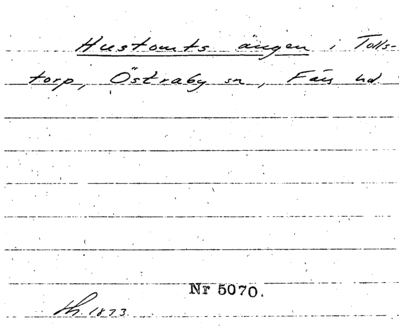 Hustomts ängen i Tolls-
torp, Östraby sn, Färs hd
Nr 5070.
1873